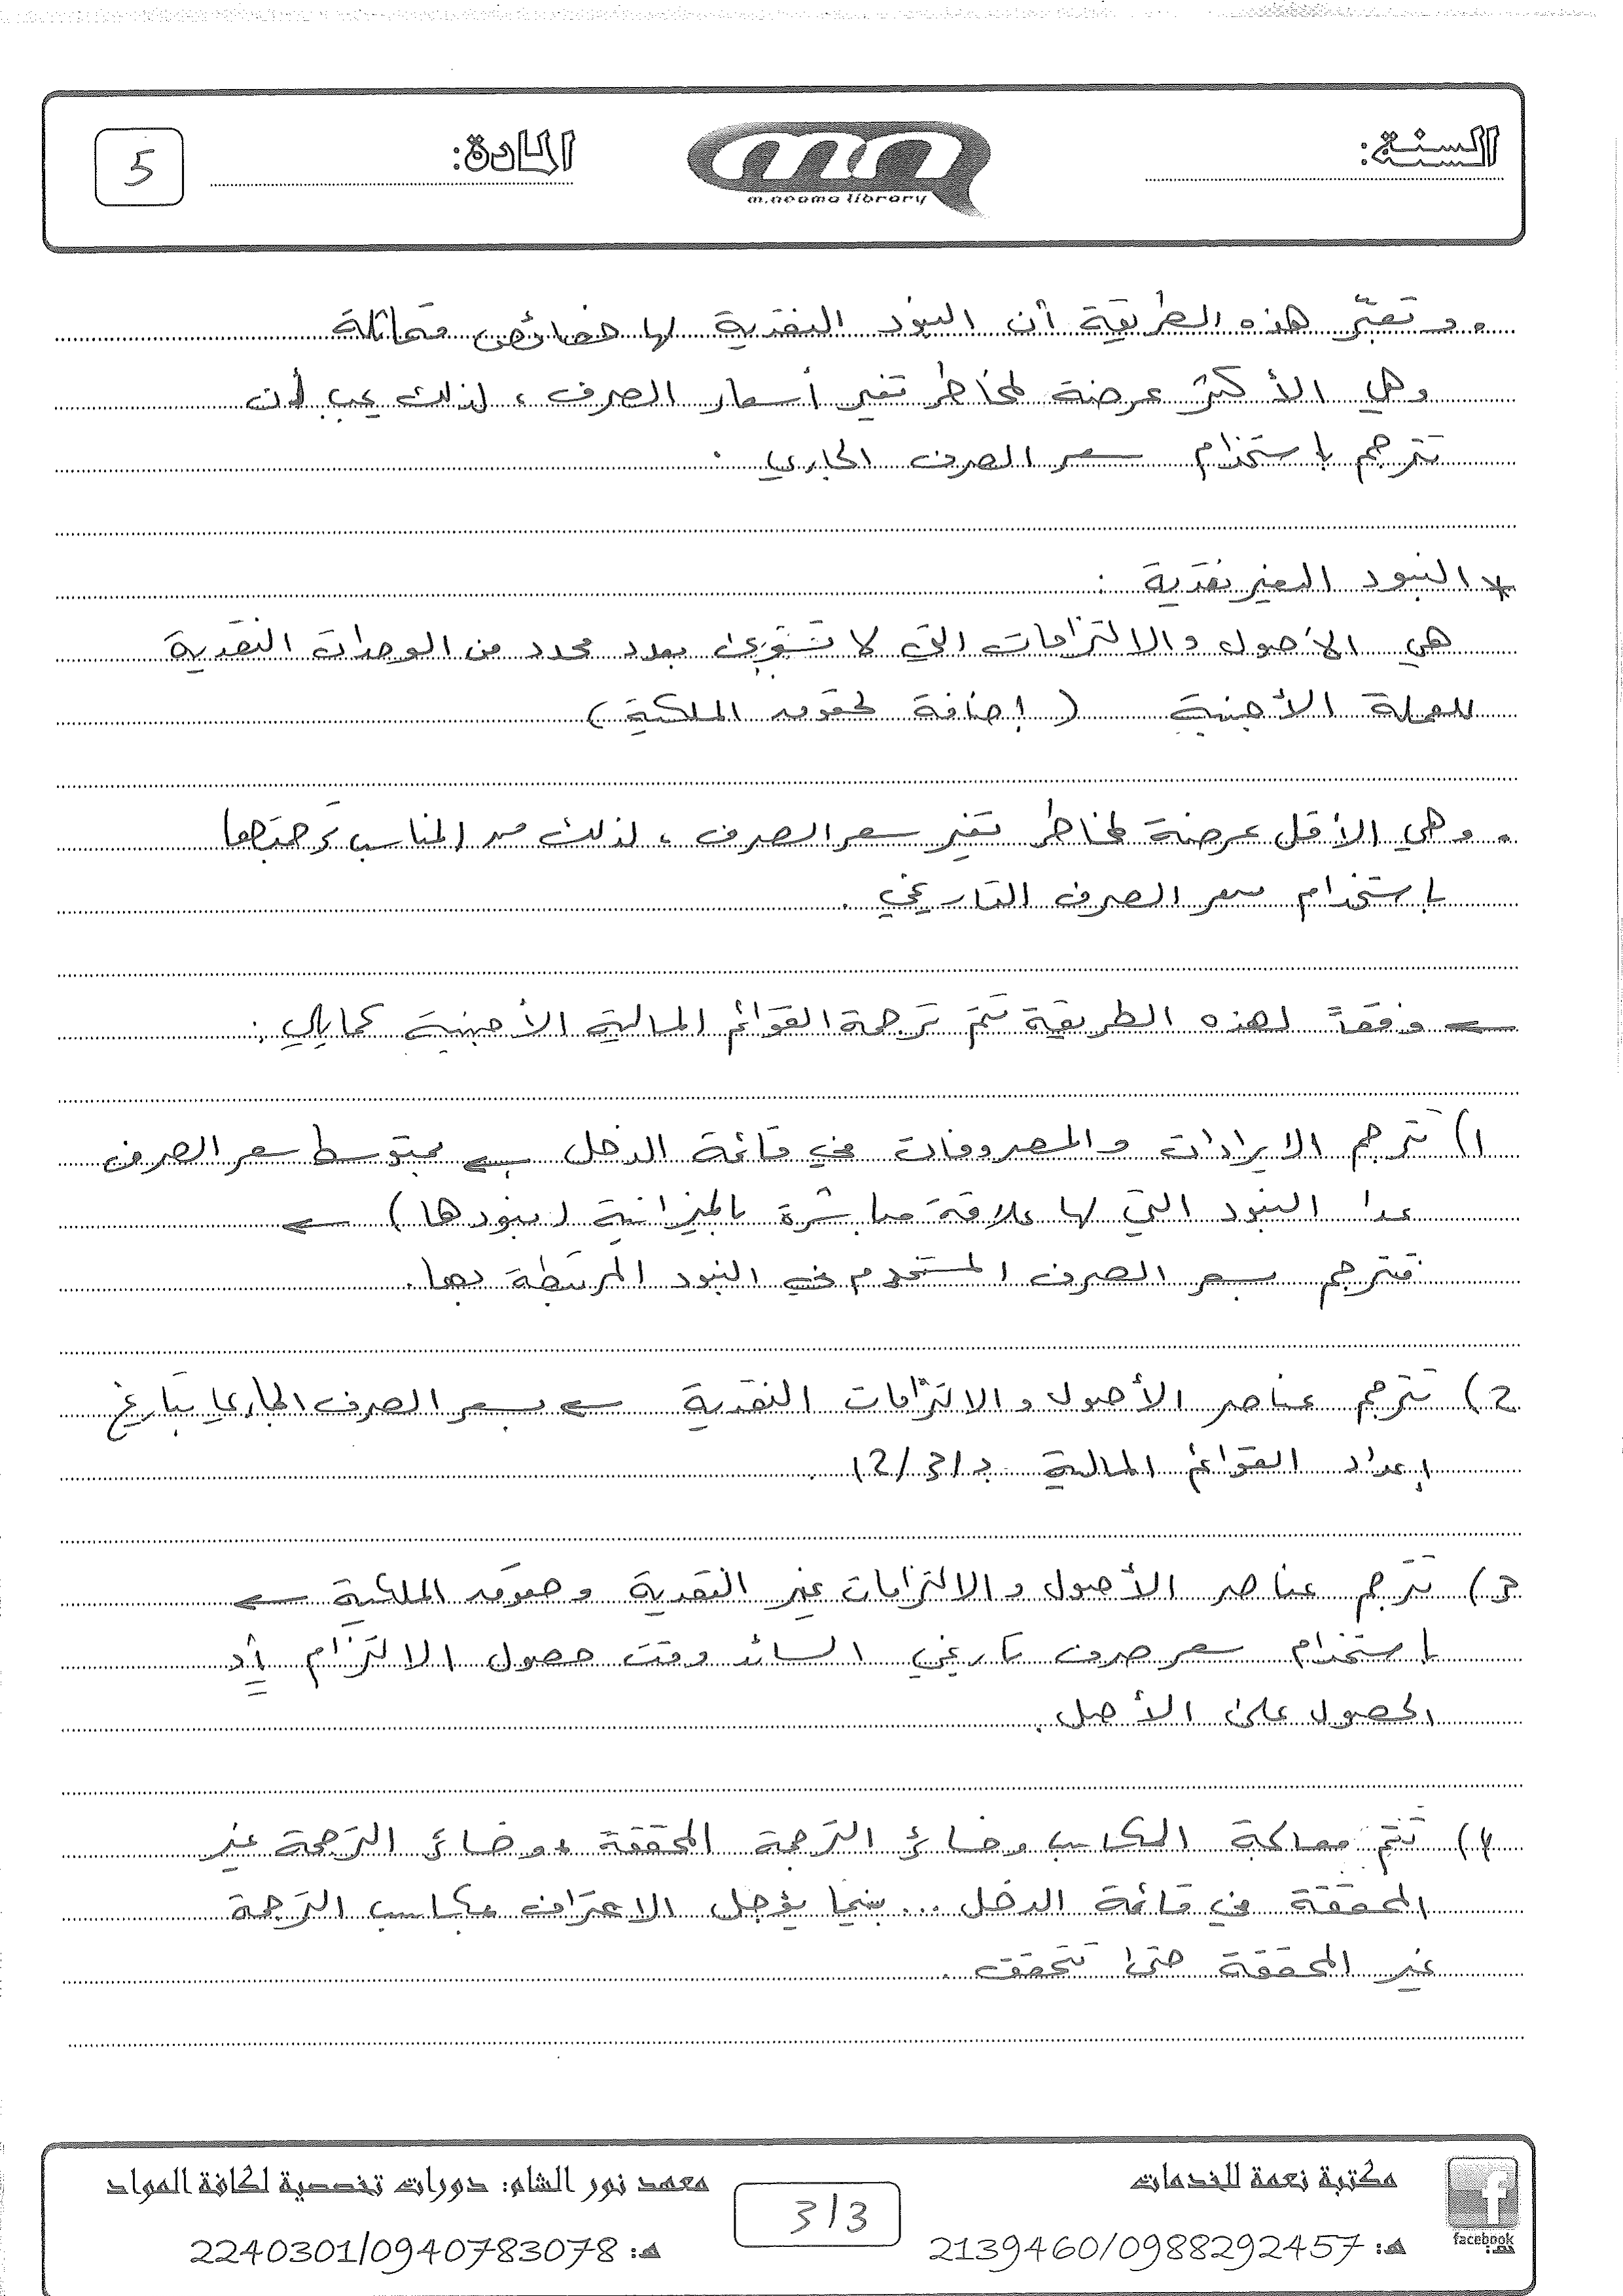 السنة:
m.neama library
المادة:
5
• وتعتبر هذه الطريقة أن البنود النقدية لها خصائص متماثلة
وهي الأكثر عرضة لمخاطر تغير أسعار الصرف ، لذلك يجب أن
تترجم باستخدام سعر الصرف الجاري .
* البنود الغير نقدية :
هي الأصول والالتزامات التي لا تسوى بعدد محدد من الوحدات النقدية
للعملة الأجنبية ( إضافة لحقوق الملكية )
• وهي الأقل عرضة لمخاطر تغير سعر الصرف ، لذلك من المناسب ترجمتها
باستخدام سعر الصرف التاريخي .
← وفقاً لهذه الطريقة تتم ترجمة القوائم المالية الأجنبية كما يلي :
1) تترجم الايرادات والمصروفات في قائمة الدخل ← بمتوسط سعر الصرف
عدا البنود التي لها علاقة مباشرة بالميزانية ( بنودها ) ←
فتترجم بسعر الصرف المستخدم في البنود المرتبطة بها .
2) تترجم عناصر الأصول والالتزامات النقدية ← بسعر الصرف الجاري بتاريخ
إعداد القوائم المالية بـ 12/31 .
3) تترجم عناصر الأصول والالتزامات غير النقدية وحقوق الملكية ←
باستخدام سعر صرف تاريخي السائد وقت حصول الالتزام أو
الحصول على الأصل .
4) تتم معالجة المكاسب وخسائر الترجمة المحققة ووخسائر الترجمة غير
المحققة في قائمة الدخل ... بينما يؤجل الاعتراف بمكاسب الترجمة
غير المحققة حتى تتحقق .
مكتبة نعمة للخدمات
هـ: 2139460/0988292457
facebook
3/3
معهد نور الشام: دورات تخصصية لكافة المواد
هـ: 2240301/0940783078